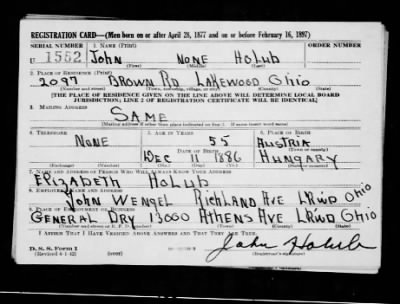 REGISTRATION CARD—(Men born on or after April 28, 1877 and on or before February 16, 1897)
SERIAL NUMBER 1. NAME (Print) ORDER NUMBER
U 1552 John NONE Holub
(First) (Middle) (Last)
2. PLACE OF RESIDENCE (Print)
2097 Brown Rd. Lakewood Ohio
(Number and street) (Town, township, village, or city) (County) (State)
[THE PLACE OF RESIDENCE GIVEN ON THE LINE ABOVE WILL DETERMINE LOCAL BOARD
JURISDICTION; LINE 2 OF REGISTRATION CERTIFICATE WILL BE IDENTICAL]
3. MAILING ADDRESS
SAME
[Mailing address if other than place indicated on line 2. If same insert word same]
4. TELEPHONE 5. AGE IN YEARS 6. PLACE OF BIRTH
NONE 55 Austria
DATE OF BIRTH (Town or county)
Dec 11 1886 Hungary
(Exchange) (Number) (Mo.) (Day) (Yr.) (State or country)
7. NAME AND ADDRESS OF PERSON WHO WILL ALWAYS KNOW YOUR ADDRESS
Elizabeth Holub
8. EMPLOYER'S NAME AND ADDRESS
John Wengel Richland Ave LKWd Ohio
9. PLACE OF EMPLOYMENT OR BUSINESS
General Dry 13000 Athens Ave LKWd Ohio
(Number and street or R. F. D. number) (Town) (County) (State)
I AFFIRM THAT I HAVE VERIFIED ABOVE ANSWERS AND THAT THEY ARE TRUE.
D. S. S. Form 1
(Revised 4-1-42) (over)
John Holub
(Registrant's signature)